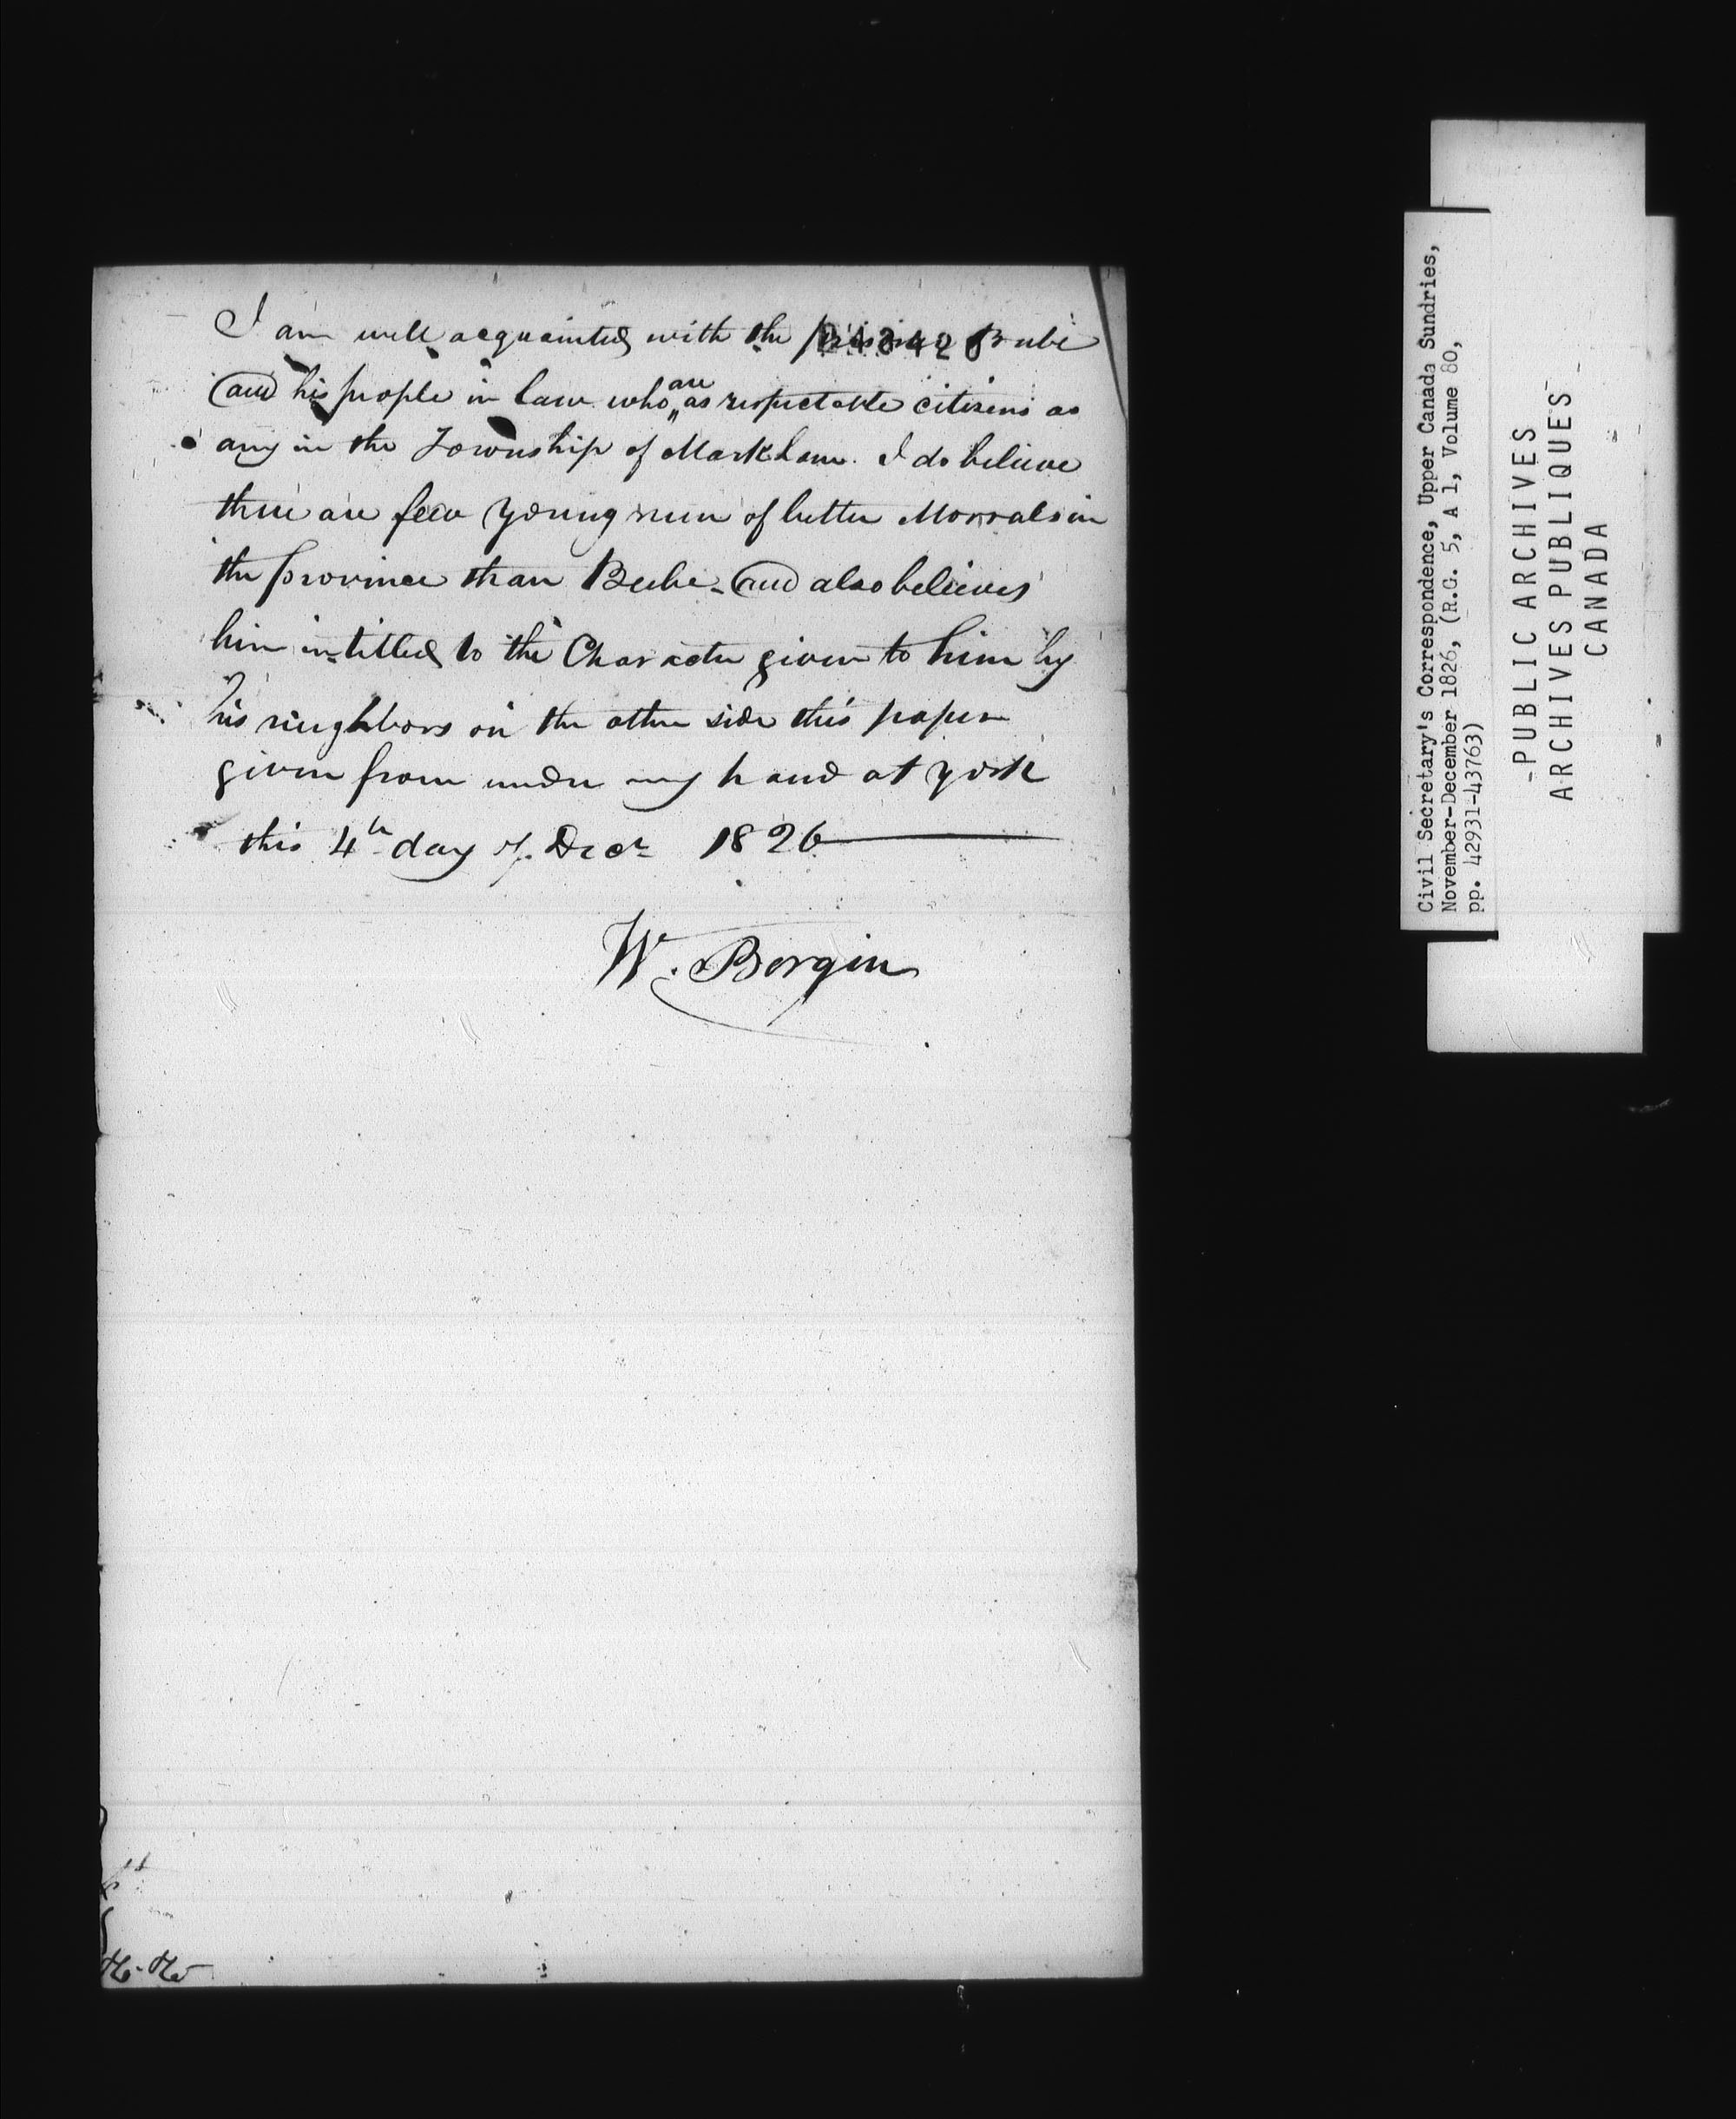 I am well acquainted with the prisoner Beebe
and his people in law who are as respectable citizens as
any in the Township of Markham. I do believe
there are few young men of better Morrals in
the province than Beebe - and also believes
him intitled to the Character given to him by
his neighbors on the other side this paper
given from under my hand at york
this 4th day of Decr 1826
W. Bergin
Civil Secretary's Correspondence, Upper Canada Sundries,
November-December 1826, (R.G. 5, A 1, Volume 80,
pp. 42931-43763)
-PUBLIC ARCHIVES
ARCHIVES PUBLIQUES-
CANADA